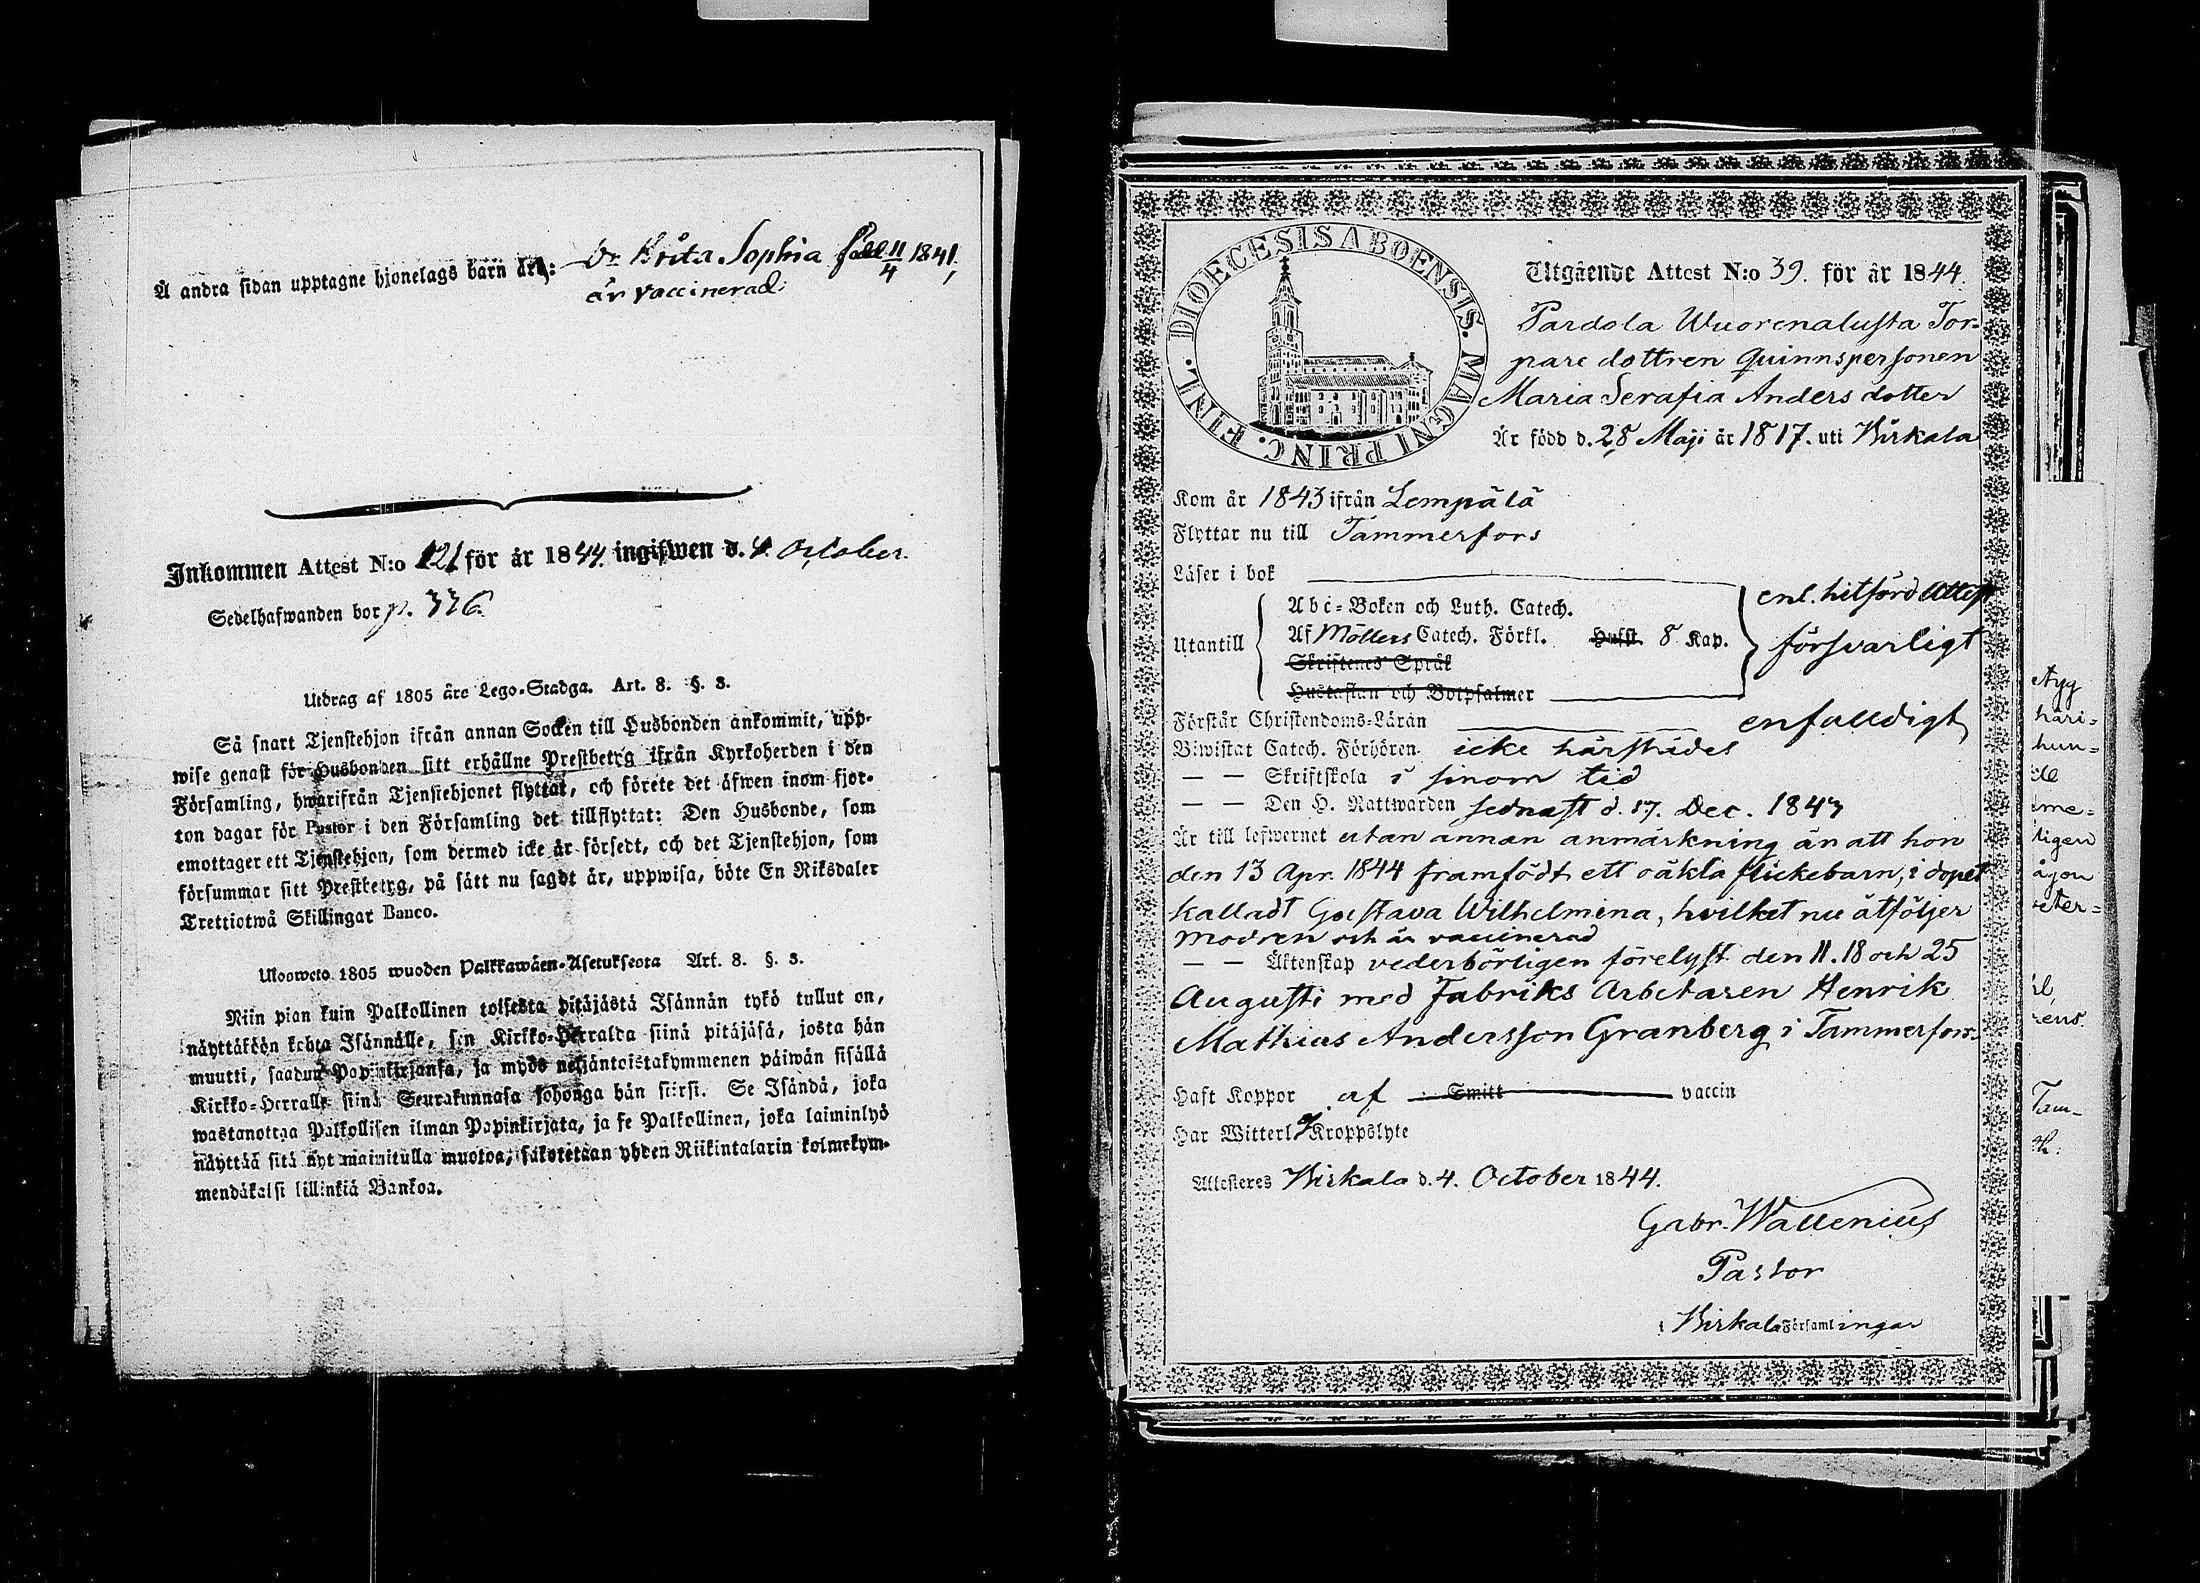 Å andra sidan upptagne hjonelags barn äro: Dr Brita Sophia född 11/4 1841,
är vaccinerad
Inkommen Attest N:o 121 för år 1844. ingifwen d. 4 October.
Sedelhafwanden bor p. 336.
Utdrag af 1805 års Lego-Stadga. Art. 8. §. 3.
Så snart Tjenstehjon ifrån annan Socken till Husbonden ankommit, upp-
wise genast för Husbonden sitt erhållne Prestbetyg ifrån Kyrkoherden i den
Församling, hwarifrån Tjenstehjonet flyttat, och förete det äfwen inom fjor-
ton dagar för Pastor i den Församling det tillflyttat: Den Husbonde, som
emottager ett Tjenstehjon, som dermed icke är försedt, och det Tjenstehjon, som
försummar sitt Prestbetyg, på sätt nu sagdt är, uppwisa, böte En Riksdaler
Trettiotwå Skillingar Banco.
Ulosweto 1805 wuoden Palkkawäen-Asetuksesta Art. 8. §. 3.
Niin pian kuin Palkollinen toisesta pitäjästä Isännän tykö tullut on,
näyttäköön kohta Isännälle, sen Kirkko-Herralda siinä pitäjäsä, josta hän
muutti, saadun Papinkirjansa, ja myös neljäntoistakymmenen päiwän sisällä
Kirkko-Herralle siinä Seurakunnasa johonga hän siirsi. Se Isändä, joka
wastanottaa Palkollisen ilman Papinkirjata, ja se Palkollinen, joka laiminlyö
näyttää sitä nyt mainitulla muotoa, sakotetaan yhden Riikintalarin kolmekym-
mendäkaksi killinkiä Bankoa.
DIOECESIS ABOENSIS. MAGNI PRINC. FINL.
Utgående Attest N:o 39. för år 1844.
Pardola Wuorenalusta Tor-
pare dottren Quinnspersonen
Maria Serafia Anders dotter
Är född d. 28 Maji år 1817. uti Birkala
Kom år 1843 ifrån Lempälä
Flyttar nu till Tammerfors
Läser i bok
enl. hitförd Attest
Abc-Boken och Luth. Catech.
Utantill Af Möllers Catech. Förkl. Hufst. 8 Kap. försvarligt
Skriftenes Språk
Hustaflan och Botpsalmer
Förstår Christendoms-Läran enfalldigt
Biwistat Catech. Förhören icke härstädes
— — Skriftskola i sinom tid
— — Den H. Nattwarden sednast d. 17. Dec. 1843
Är till lefwernet utan annan anmärkning än att hon
den 13 Apr. 1844 framfödt ett oäkta flickebarn, i dopet
kalladt Gustava Wilhelmina, hvilket nu åtföljer
modren och är vaccinerad
— — Äktenskap vederbörligen förelyst den 11. 18 och 25
Augusti med Fabriks Arbetaren Henrik
Mathias Andersson Granberg i Tammerfors.
Haft Koppor af Smitt vaccin
Har Witterl. Kroppslyte
Attesteres Birkala d. 4. October 1844.
Gabr. Wallenius
Pastor
i Birkala Församlingar